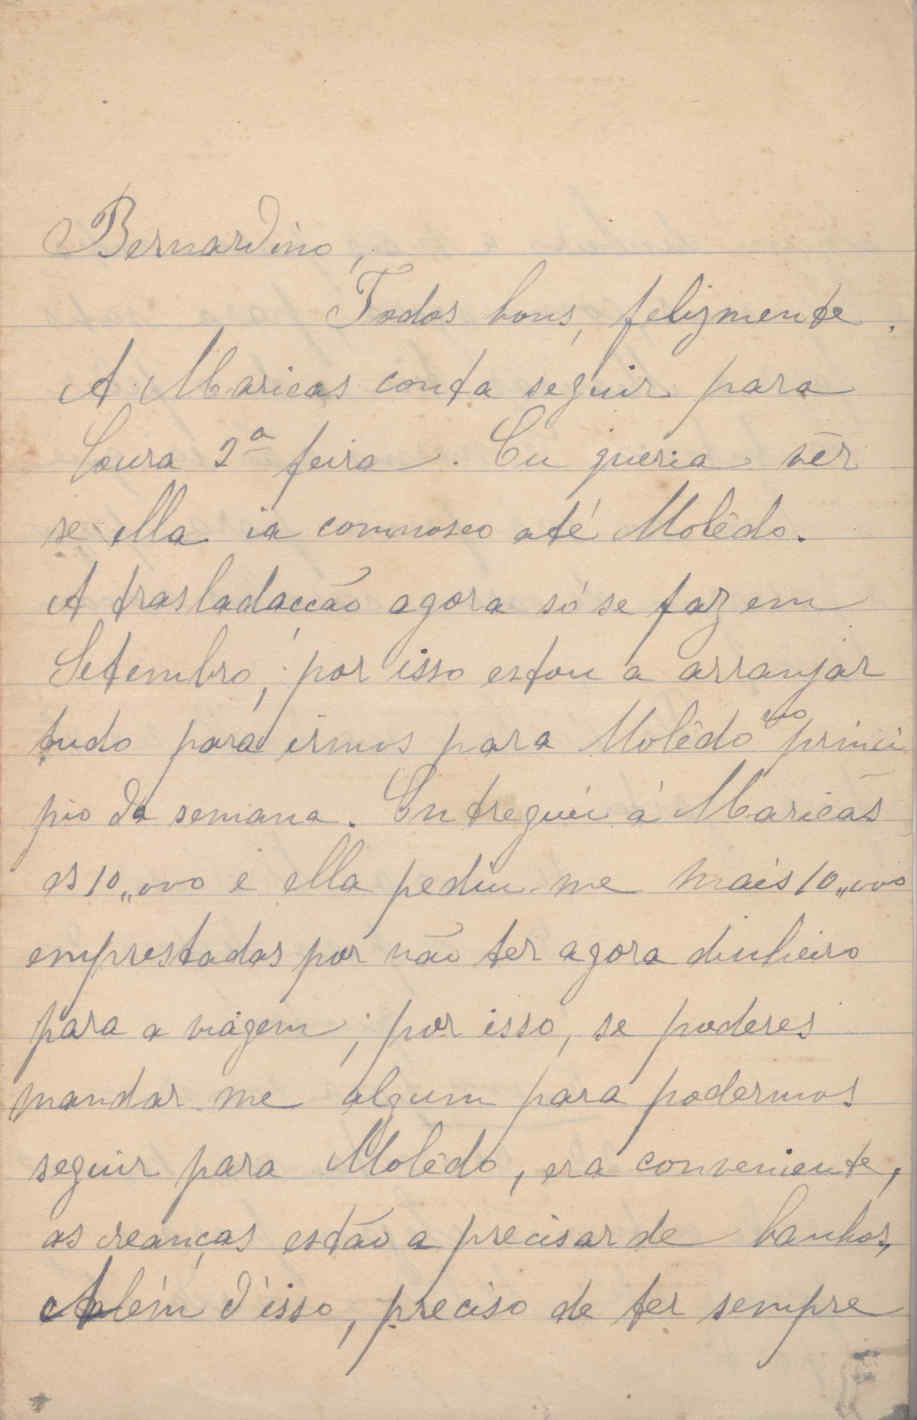 Bernardino,
Todos bons, felizmente.
A Maricas conta seguir para
Coura 2ª feira. Eu queria vêr
se ella ia comnosco até Molêdo.
A trasladacção agora só se faz em
Setembro; por isso estou a arranjar
tudo para irmos para Molêdo no princi
pio da semana. Entreguei á Maricas
os 10,,000 e ella pediu-me mais 10,,000
emprestados por não ter agora dinheiro
para a viagem; por isso, se poderes
mandar-me algum para podermos
seguir para Molêdo, era conveniente,
as creanças estão a precisar de banhos,
Além d'isso, preciso de ter sempre